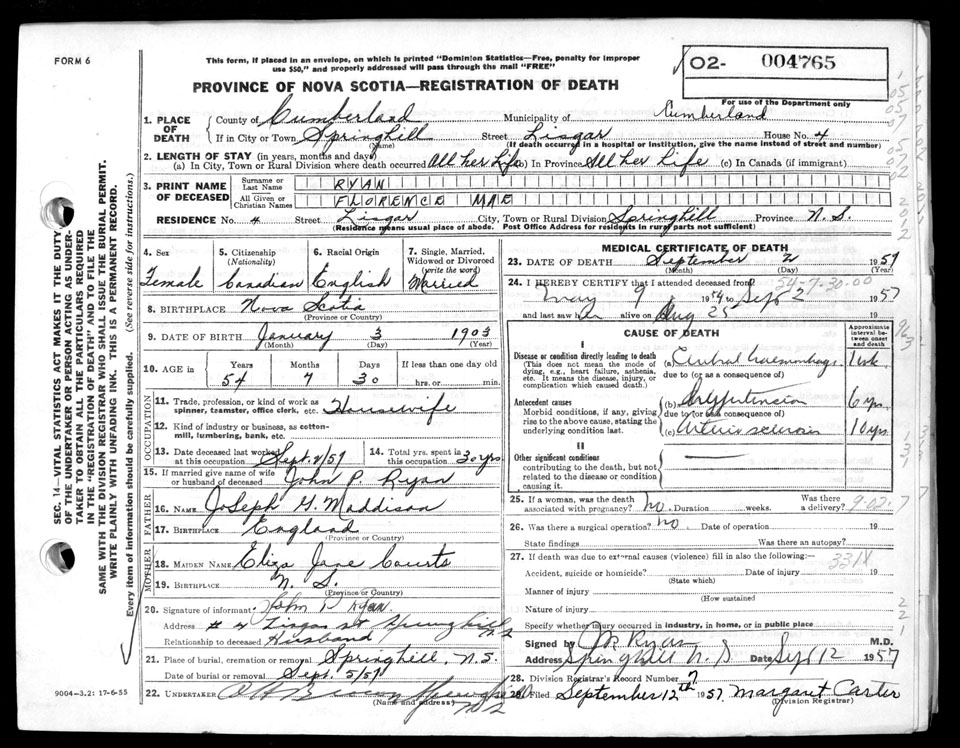 FORM 6
This form, if placed in an envelope, on which is printed "Dominion Statistics—Free, penalty for improper
use $50," and properly addressed will pass through the mail "FREE"
O2- 004765
For use of the Department only
PROVINCE OF NOVA SCOTIA—REGISTRATION OF DEATH
1. PLACE OF DEATH
County of Cumberland Municipality of Cumberland
If in City or Town Springhill Street Lisgar House No. 4
(Name) (If death occurred in a hospital or institution, give the name instead of street and number)
2. LENGTH OF STAY (in years, months and days)
(a) In City, Town or Rural Division where death occurred All her Life (b) In Province All her Life (c) In Canada (if immigrant)
3. PRINT NAME OF DECEASED
Surname or Last Name RYAN
All Given or Christian Names FLORENCE MAE
RESIDENCE No. 4 Street Lisgar City, Town or Rural Division Springhill Province N.S.
(Residence means usual place of abode. Post Office Address for residents in rural parts not sufficient)
4. Sex Female
5. Citizenship (Nationality) Canadian
6. Racial Origin English
7. Single, Married, Widowed or Divorced (write the word) Married
8. BIRTHPLACE Nova Scotia
(Province or Country)
9. DATE OF BIRTH January 3 1903
(Month) (Day) (Year)
10. AGE in Years Months Days If less than one day old
54 7 30 hrs. or min.
OCCUPATION
11. Trade, profession, or kind of work as spinner, teamster, office clerk, etc. Housewife
12. Kind of industry or business, as cotton-mill, lumbering, bank, etc.
13. Date deceased last worked at this occupation Sept. 2/57
14. Total yrs. spent in this occupation 30 yrs.
15. If married give name of wife or husband of deceased John P. Ryan
FATHER
16. NAME Joseph G. Maddison
17. BIRTHPLACE England
(Province or Country)
MOTHER
18. MAIDEN NAME Eliza Jane Courts
19. BIRTHPLACE N. S.
(Province or Country)
20. Signature of informant John P Ryan
Address # 4 Lisgar St Springhill NS
Relationship to deceased Husband
21. Place of burial, cremation or removal Springhill, N.S.
Date of burial or removal Sept. 5/57
22. UNDERTAKER
(Name and address)
9004—3.2: 17-6-55
MEDICAL CERTIFICATE OF DEATH
23. DATE OF DEATH September 2 1957
(Month) (Day) (Year)
54-7-30-00
24. I HEREBY CERTIFY that I attended deceased from
9 1954 to Sept 2 1957
and last saw her alive on Aug 25
CAUSE OF DEATH
Approximate interval between onset and death
I
Disease or condition directly leading to death
(This does not mean the mode of dying, e.g., heart failure, asthenia, etc. It means the disease, injury, or complication which caused death.)
(a) Cerebral haemorrhage 1 wk
due to (or as a consequence of)
Antecedent causes
Morbid conditions, if any, giving rise to the above cause, stating the underlying condition last.
(b) Hypertension 6 yrs.
due to (or as a consequence of)
(c) Arteriosclerosis 10 yrs
II
Other significant conditions
contributing to the death, but not related to the disease or condition causing it.
25. If a woman, was the death associated with pregnancy? No. Duration weeks. Was there a delivery?
9-02-7
26. Was there a surgical operation? No. Date of operation 19
State findings Was there an autopsy?
27. If death was due to external causes (violence) fill in also the following:
331X
Accident, suicide or homicide? Date of injury 19
(State which)
Manner of injury
(How sustained
Nature of injury
Specify whether injury occurred in industry, in home, or in public place
Signed by J. Ryan M.D.
Address Springhill N. S Date Sept 12 1957
28. Division Registrar's Record Number 7
29. Filed September 12th 1957. Margaret Carter
(Division Registrar)
SEC. 14—VITAL STATISTICS ACT MAKES IT THE DUTY
OF THE UNDERTAKER OR PERSON ACTING AS UNDER-
TAKER TO OBTAIN ALL THE PARTICULARS REQUIRED
IN THE "REGISTRATION OF DEATH" AND TO FILE THE
SAME WITH THE DIVISION REGISTRAR WHO SHALL ISSUE THE BURIAL PERMIT.
WRITE PLAINLY WITH UNFADING INK. THIS IS A PERMANENT RECORD.
Every item of information should be carefully supplied. (See reverse side for instructions.)